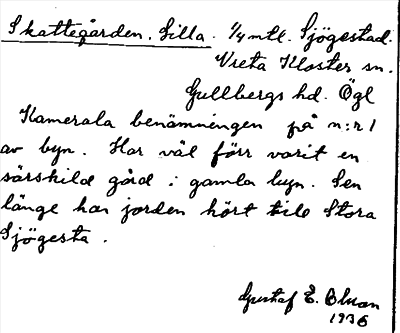 Skattegården. Lilla. 1/4 mtl. Sjögestad.
Vreta Kloster sn.
Gullbergs hd. Ögl
Kamerala benämningen på n:r 1
av byn. Har väl förr varit en
särskild gård i gamla byn. Sen
länge har jorden hört till Stora
Sjögesta.
Gustaf E. Bluan
1936